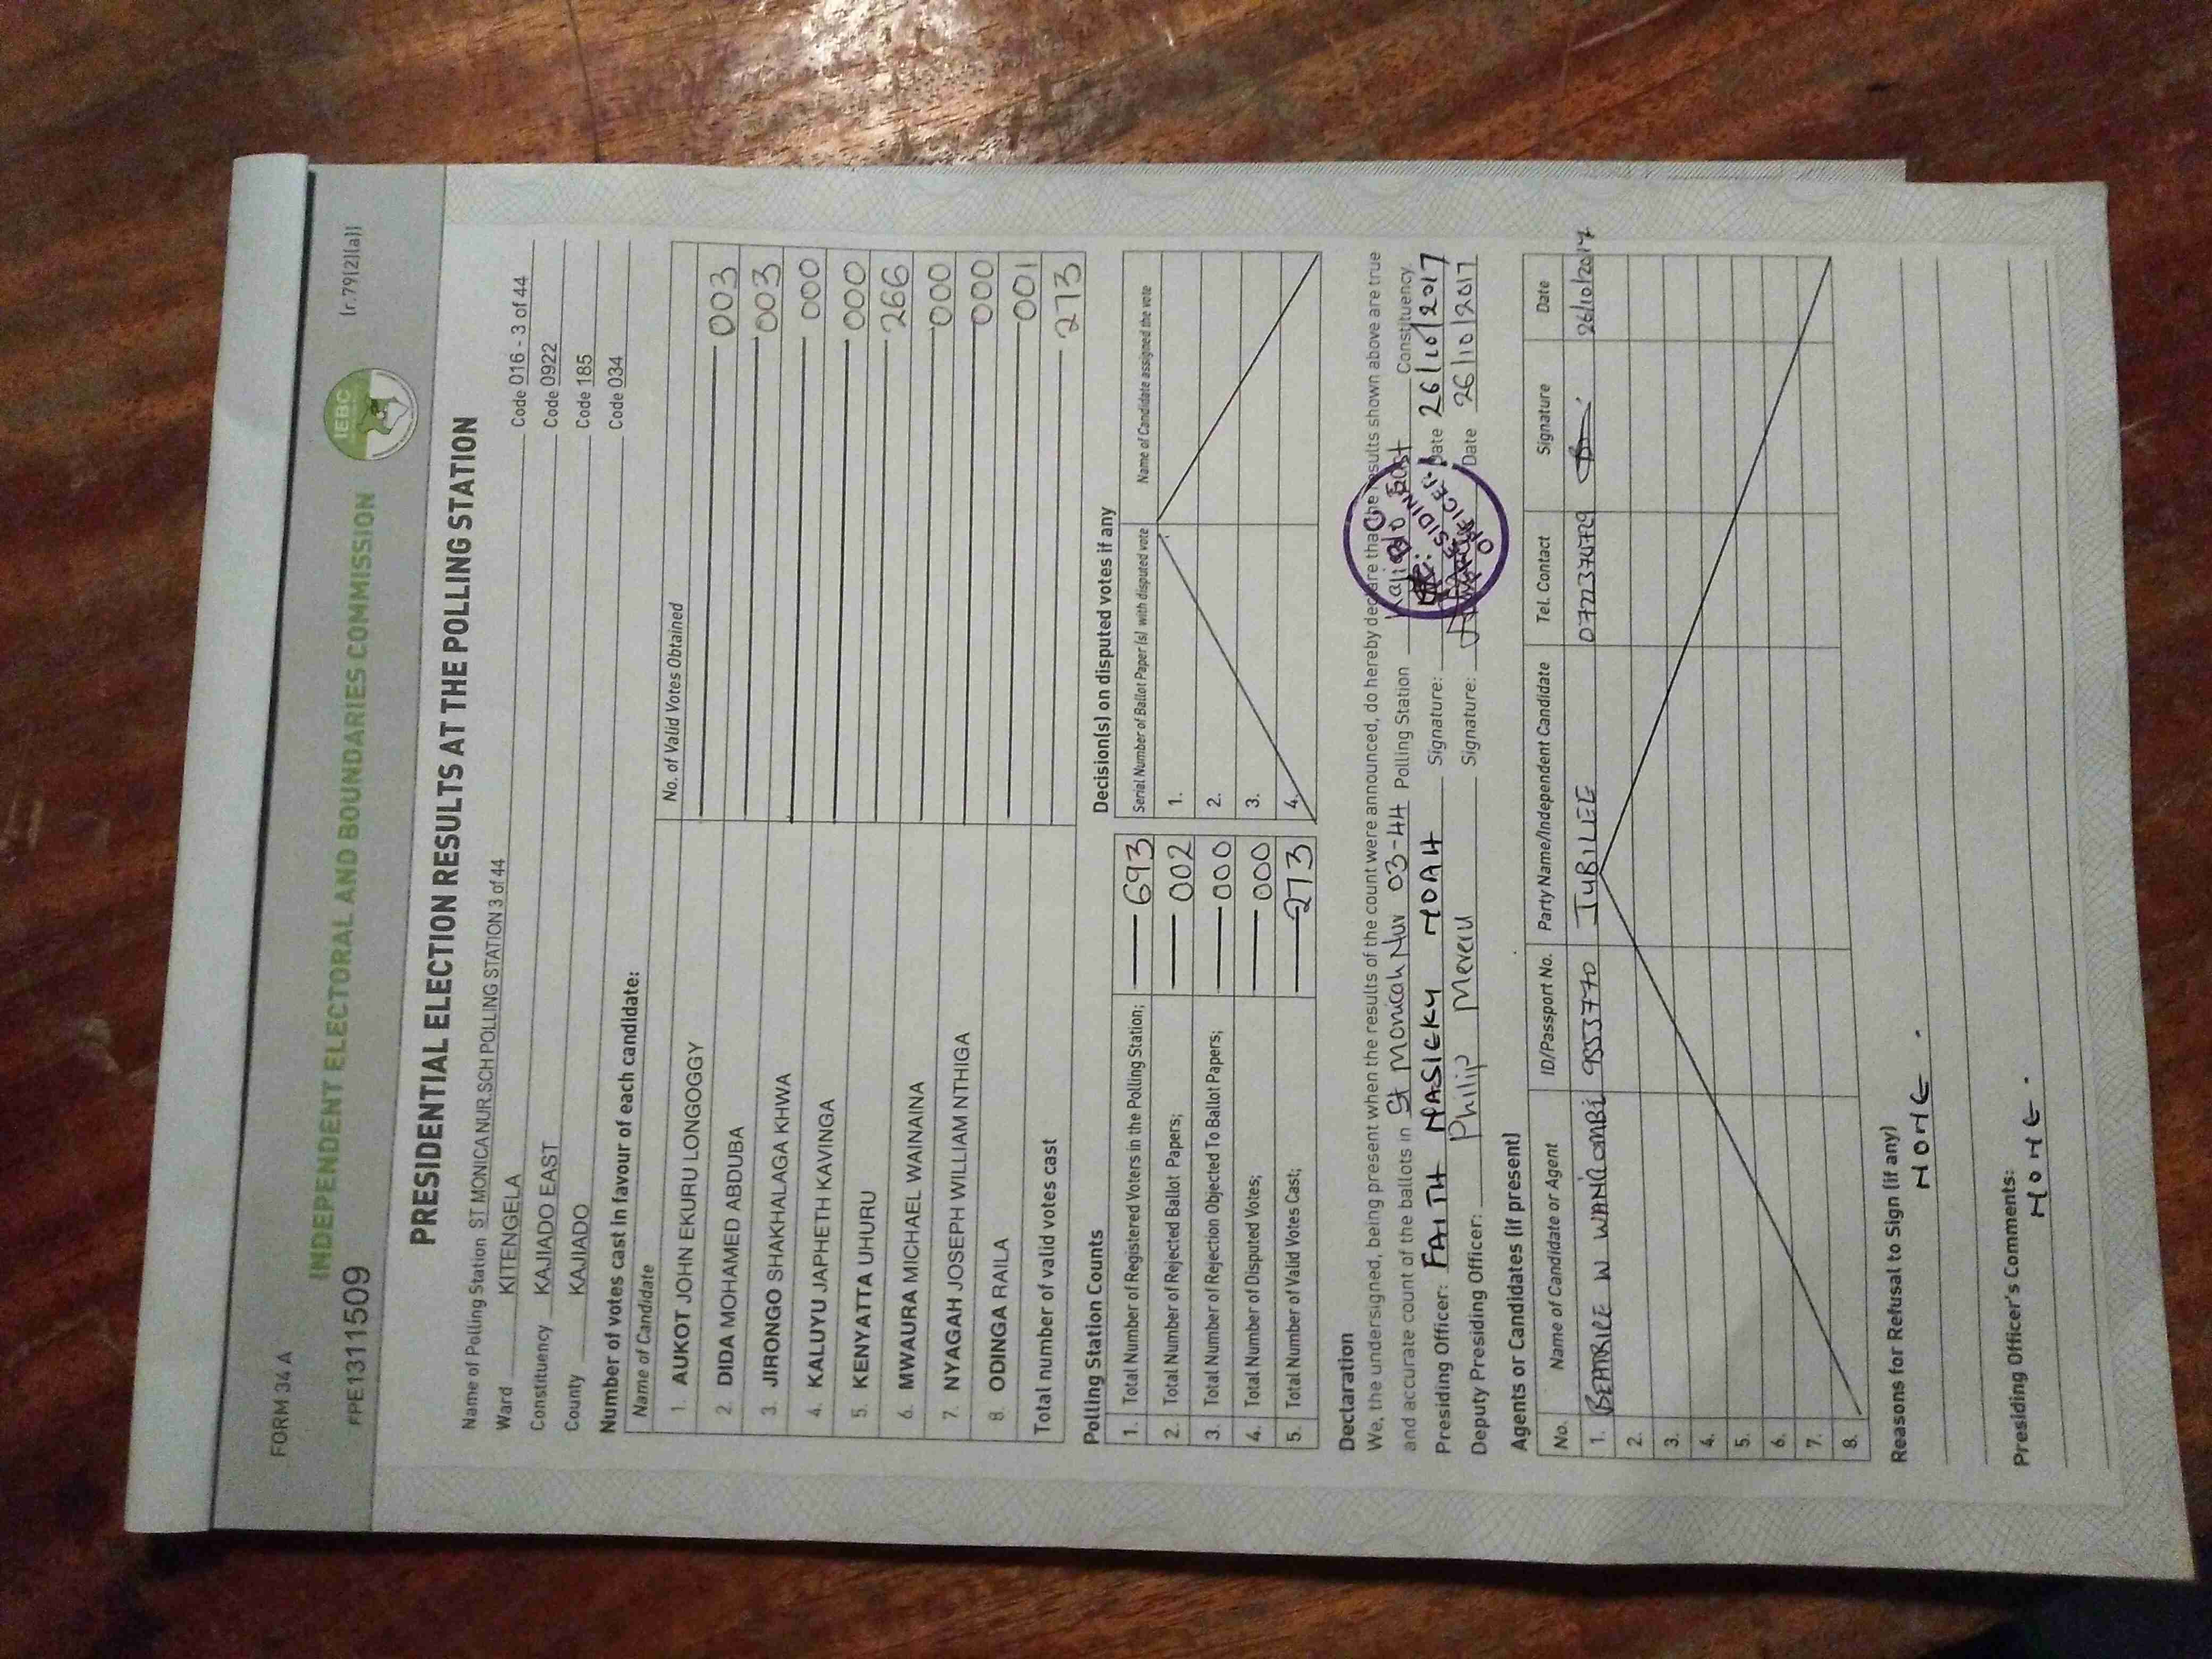 FORM 34 A
(r.79(2)(a))
INDEPENDENT ELECTORAL AND BOUNDARIES COMMISSION
IEBC
FPE1311509
PRESIDENTIAL ELECTION RESULTS AT THE POLLING STATION
Name of Polling Station ST MONICA NUR.SCH POLLING STATION 3 of 44 Code 016 - 3 of 44
Ward KITENGELA Code 0922
Constituency KAJIADO EAST Code 185
County KAJIADO Code 034
Number of votes cast in favour of each candidate:
Name of Candidate No. of Valid Votes Obtained
1. AUKOT JOHN EKURU LONGOGGY 003
2. DIDA MOHAMED ABDUBA 003
3. JIRONGO SHAKHALAGA KHWA 000
4. KALUYU JAPHETH KAVINGA 000
5. KENYATTA UHURU 266
6. MWAURA MICHAEL WAINAINA 000
7. NYAGAH JOSEPH WILLIAM NTHIGA 000
8. ODINGA RAILA 001
Total number of valid votes cast 273
Polling Station Counts
1. Total Number of Registered Voters in the Polling Station; 693
2. Total Number of Rejected Ballot Papers; 002
3. Total Number of Rejection Objected To Ballot Papers; 000
4. Total Number of Disputed Votes; 000
5. Total Number of Valid Votes Cast; 273
Decision(s) on disputed votes if any
Serial Number of Ballot Paper (s) with disputed vote Name of Candidate assigned the vote
1.
2.
3.
4.
Declaration
We, the undersigned, being present when the results of the count were announced, do hereby declare that the results shown above are true
and accurate count of the ballots in St Monicah Nur 03-44 Polling Station Kajiado East Constituency.
Presiding Officer: FAITH NASIEKU NOAH Signature: Date 26/10/2017
Deputy Presiding Officer: Philip Mereru Signature: Date 26/10/2017
PRESIDING OFFICER
Agents or Candidates (if present)
No. Name of Candidate or Agent ID/Passport No. Party Name/Independent Candidate Tel. Contact Signature Date
1. BEATRICE W WANGOMBE 9553770 JUBILEE 0722374729 26/10/2017
2.
3.
4.
5.
6.
7.
8.
Reasons for Refusal to Sign (if any)
NONE.
Presiding Officer's Comments:
NONE.